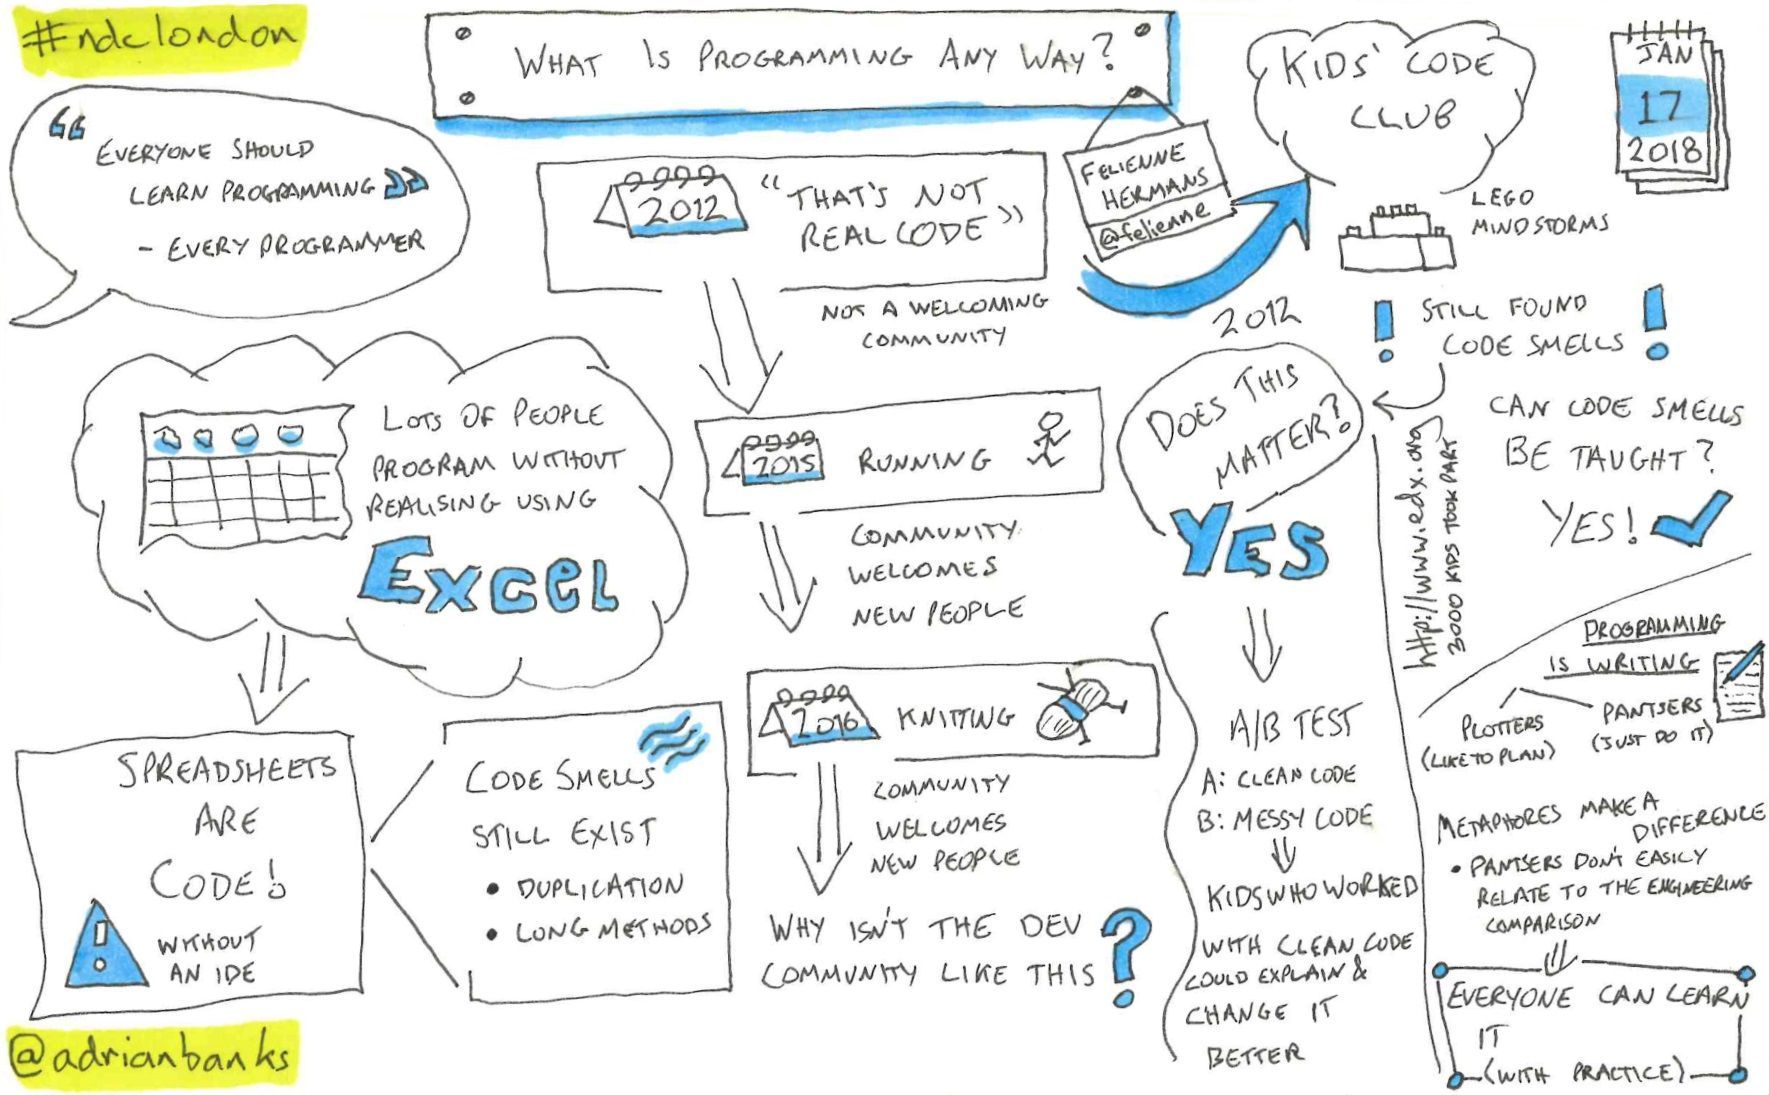 #ndclondon
WHAT IS PROGRAMMING ANY WAY?
FELIENNE
HERMANS
@felienne
JAN
17
2018
“ EVERYONE SHOULD
LEARN PROGRAMMING ”
- EVERY PROGRAMMER
LOTS OF PEOPLE
PROGRAM WITHOUT
REALISING USING
EXCEL
SPREADSHEETS
ARE
CODE!
WITHOUT
AN IDE
CODE SMELLS
STILL EXIST
• DUPLICATION
• LONG METHODS
2012
“THAT'S NOT
REAL CODE”
NOT A WELCOMING
COMMUNITY
2015
RUNNING
COMMUNITY
WELCOMES
NEW PEOPLE
2016
KNITTING
COMMUNITY
WELCOMES
NEW PEOPLE
WHY ISN'T THE DEV
COMMUNITY LIKE THIS ?
2012
KIDS' CODE
CLUB
LEGO
MINDSTORMS
! STILL FOUND
CODE SMELLS !
DOES THIS
MATTER?
YES
A/B TEST
A: CLEAN CODE
B: MESSY CODE
KIDS WHO WORKED
WITH CLEAN CODE
COULD EXPLAIN &
CHANGE IT
BETTER
CAN CODE SMELLS
BE TAUGHT?
YES!
http://www.edx.org
3000 KIDS TOOK PART
PROGRAMMING
IS WRITING
PLOTTERS
(LIKE TO PLAN)
PANTSERS
(JUST DO IT)
METAPHORES MAKE A
DIFFERENCE
• PANTSERS DON'T EASILY
RELATE TO THE ENGINEERING
COMPARISON
EVERYONE CAN LEARN
IT
(WITH PRACTICE)
@adrianbanks